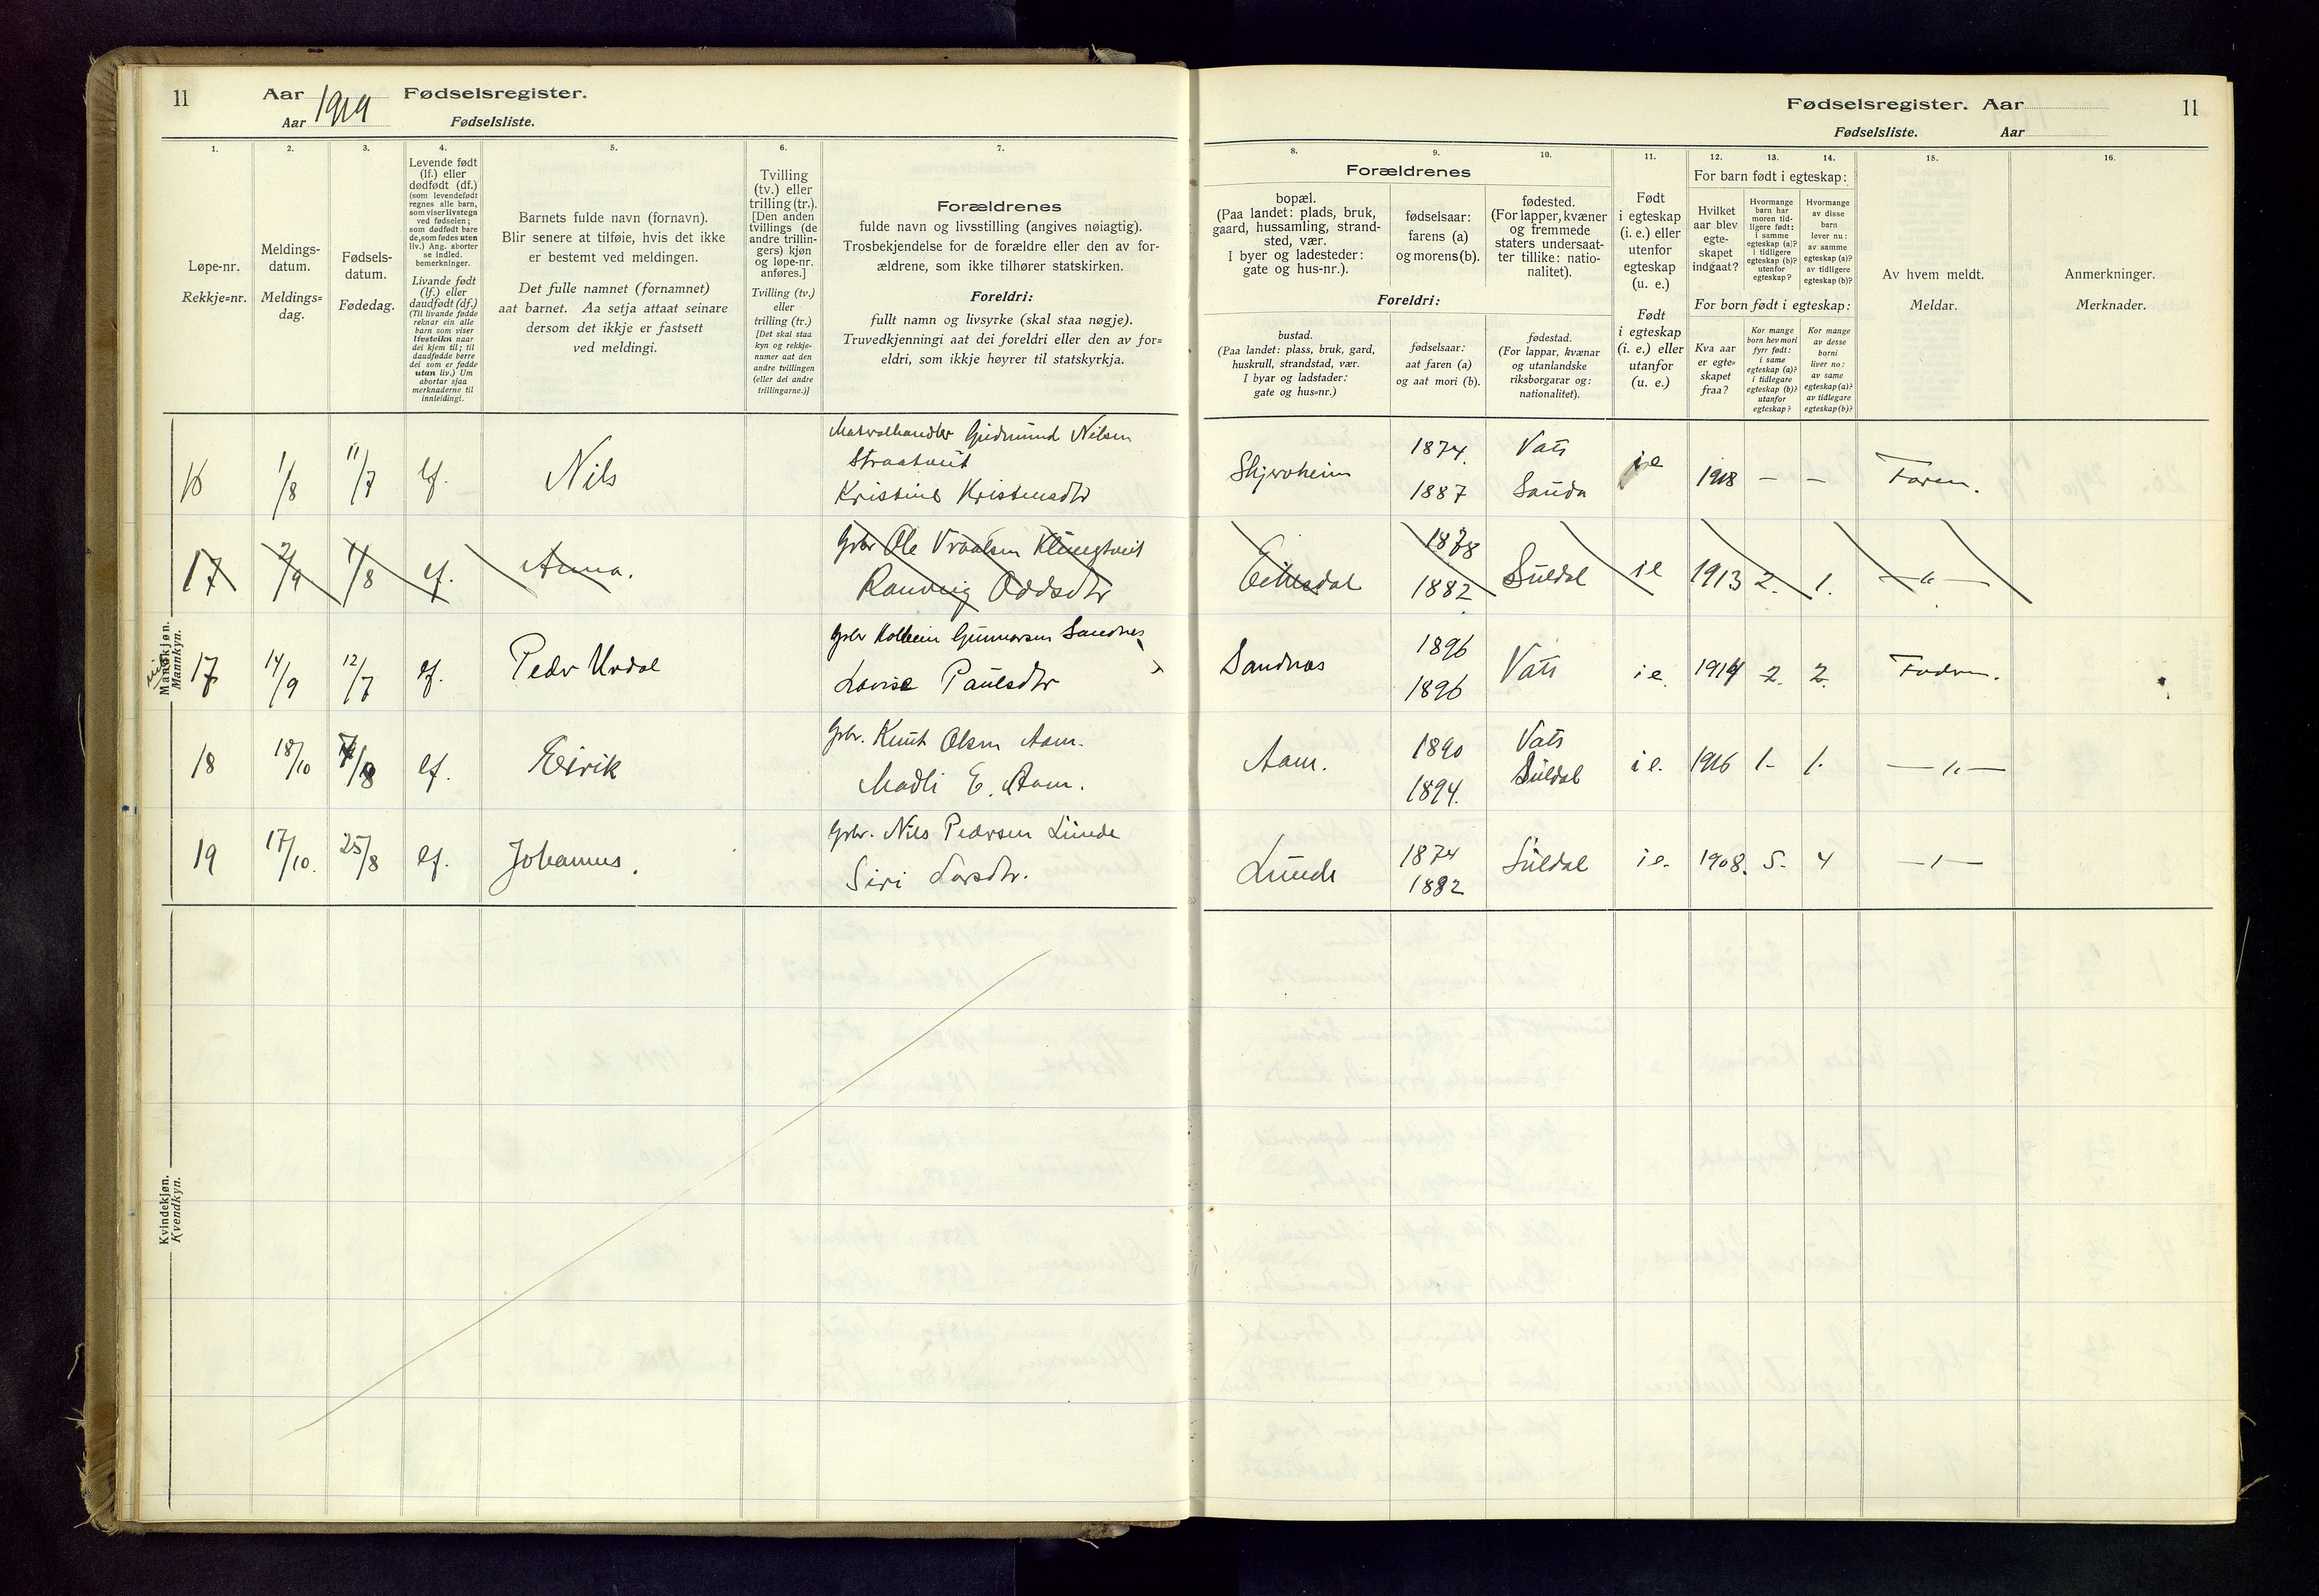 11
Aar 1919 Fødselsregister.
Aar Fødselsliste.
1.
Løpe-nr.
Rekkje=nr.
2.
Meldings-
datum.
Meldings=
dag.
3.
Fødsels-
datum.
Fødedag.
4.
Levende født
(lf.) eller
dødfødt (df.)
(som levendefødt
regnes alle barn,
som viser livstegn
ved fødselen;
som dødfødt bare
de, som fødes uten
liv.) Ang. aborter
se indled.
bemerkninger.
Livande født
(lf.) eller
daudfødt (df.)
(Til livande fødde
reknar ein alle
barn som viser
livsteikn naar
dei kjem til; til
daudfødde berre
dei som er fødde
utan liv.) Um
abortar sjaa
merknaderne til
innleidingi.
5.
Barnets fulde navn (fornavn).
Blir senere at tilføie, hvis det ikke
er bestemt ved meldingen.
Det fulle namnet (fornamnet)
aat barnet. Aa setja attaat seinare
dersom det ikkje er fastsett
ved meldingi.
6.
Tvilling
(tv.) eller
trilling (tr.).
[Den anden
tvillings (de
andre trillin-
gers) kjøn
og løpe-nr.
anføres.]
Tvilling (tv.)
eller
trilling (tr.)
[Det skal staa
kyn og rekkje-
numer aat den
andre tvillingen
(eller dei andre
trillingarne.)]
7.
Forældrenes
fulde navn og livsstilling (angives nøiagtig).
Trosbekjendelse for de forældre eller den av for-
ældrene, som ikke tilhører statskirken.
Foreldri:
fullt namn og livsyrke (skal staa nøgje).
Truvedkjenningi aat dei foreldri eller den av for=
eldri, som ikkje høyrer til statskyrkja.
Fødselsregister. Aar 11
Fødselsliste. Aar
Forældrenes
8.
bopæl.
(Paa landet: plads, bruk,
gaard, hussamling, strand-
sted, vær.
I byer og ladesteder:
gate og hus-nr.).
9.
fødselsaar:
farens (a)
og morens (b).
10.
fødested.
(For lapper, kvæner
og fremmede
staters undersaat-
ter tillike: natio-
nalitet).
Foreldri:
bustad.
(Paa landet: plass, bruk, gard,
huskrull, strandstad, vær.
I byar og ladstader:
gate og hus=nr.)
fødselsaar:
aat faren (a)
og aat mori (b).
fødestad.
(For lappar, kvænar
og utanlandske
riksborgarar og:
nationalitet).
11.
Født
i egteskap
(i. e.) eller
utenfor
egteskap
(u. e.)
Født
i egteskap
(i. e.) eller
utanfor
(u. e.)
For barn født i egteskap:
12.
Hvilket
aar blev
egte-
skapet
indgaat?
13.
Hvormange
barn har
moren tid-
ligere født:
i samme
egteskap (a)?
i tidligere
egteskap (b)?
utenfor
egteskap?
14.
Hvormange
av disse
barn
lever nu:
av samme
egteskap (a)?
av tidligere
egteskap (b)?
For born født i egteskap:
Kva aar
er egte-
skapet
fraa?
Kor mange
born hev mori
fyrr født:
i same
egteskap (a)?
i tidlegare
egteskap (b)?
utanfor
egteskap?
Kor mange
av desse
borni
liver no:
av same
egteskap (a)?
av tidlegare
egteskap (b)?
15.
Av hvem meldt.
Meldar.
16.
Anmerkninger.
Merknader.
Mandkjøn.
Mannkyn.
16 1/8 11/7 lf. Nils Gudmund Nilsen
Straatveit
Kristine Kristensdtr
Skjeroheim 1874. 1887 Vats Sauda i e 1918 – – Faren.
17 2/9 1/8 lf. Anna. Gbr Ole Vraalsen Klungtveit
Ranveig Oddsdtr
1878 1882 Suldal i e 1913 2. 1. —„—
17 14/9 12/7 lf. Peder Urdal Gbr Kolbein Gunnarsen Sandnes
Lovise Paulsdtr
Sandnes 1896 1896 Vats i e. 1914 2. 2. Fadren.
18 18/10 lf. Eirik Gbr. Knut Olsen Aam.
Madli E. Aam.
Aam. 1890 1894. Vats Suldal i e. 1916 1. 1. —„—
19 17/10. 25/8 lf. Johannes. Gbr. Nils Pedersen Lunde
Siri Larsdtr.
Lunde 1874 1882 Suldal i e. 1908. 5. 4 —„—
Kvindekjøn.
Kvendkyn.